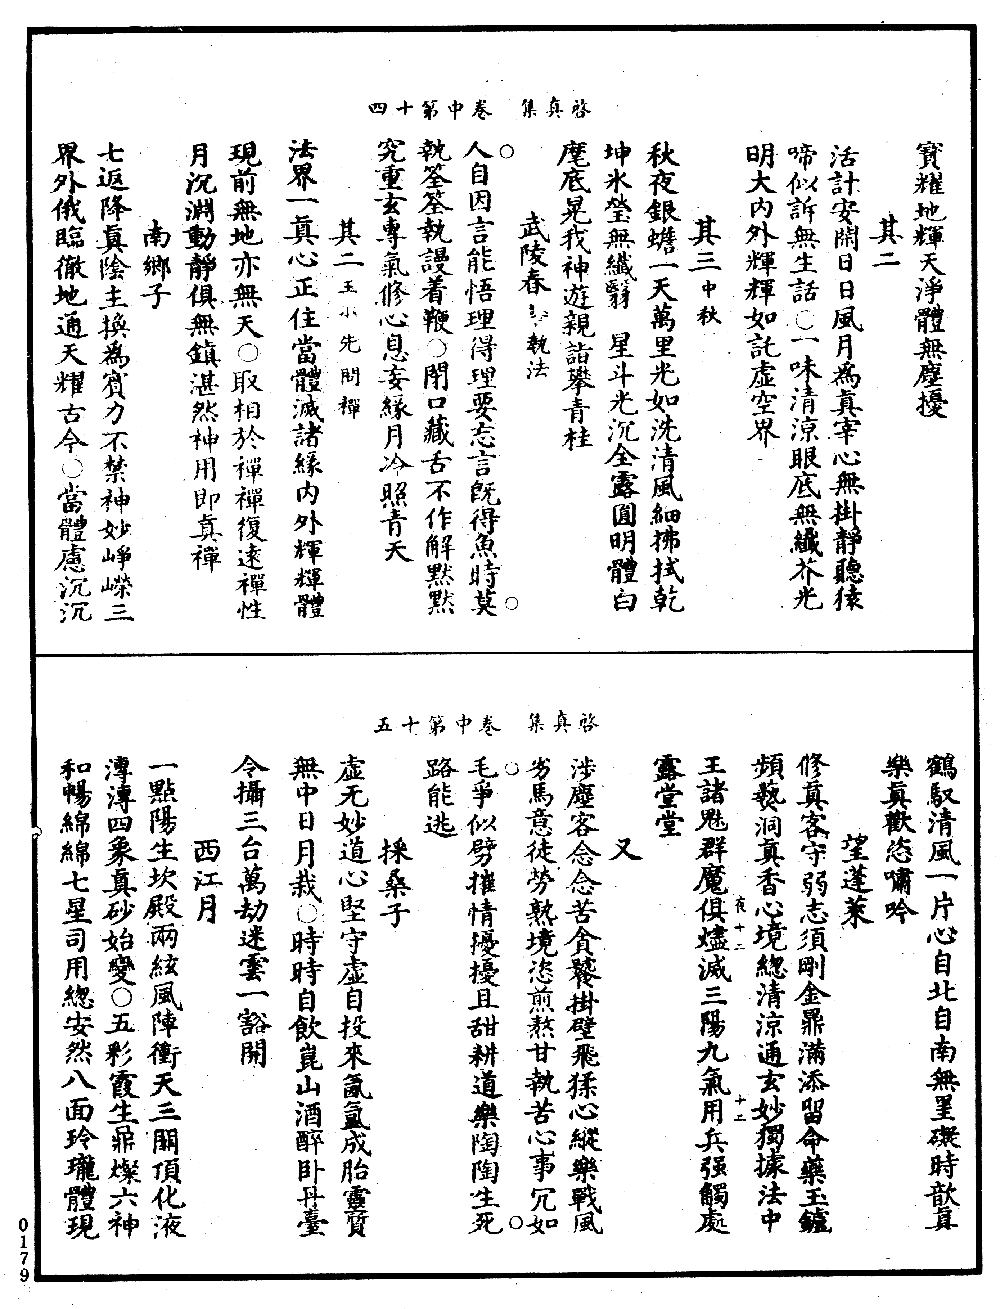 啓真集　卷中第十四
寶耀地輝天淨體無塵擾
其二
活計安閑日日風月爲真宰心無掛靜聽猿
啼似訴無生話○一味清涼眼底無纖芥光
明大內外輝輝如託虛空界
其三中秋
秋夜銀蟾一天萬里光如洗清風細拂拭乾
坤氷瑩無纖翳　星斗光沉全露圓明體白
麾底晃我神遊親詣攀青桂
武陵春　執法
人自因言能悟理得理要忘言既得魚時莫
執筌筌執謾着鞭○閉口藏舌不作解默默
究重玄專氣修心息妄緣月冷照青天
其二　先問禪
法界一真心正住當體滅諸緣內外輝輝體
現前無地亦無天○取相於禪禪復遠禪性
月沉淵動靜俱無鎮湛然神用即真禪
南鄉子
七返降真陰主換爲賓力不禁神妙崢嶸三
界外俄臨徹地通天耀古今○當體慮沉沉
啓真集　卷中第十五
鶴馭清風一片心自北自南無罣礙時歆真
樂真歡恣嘯吟
望蓬萊
修真客守弱志須剛金鼎滿添留命藥玉鑪
頻爇洞真香心境總清涼通玄妙獨據法中
王諸魁群魔俱燼滅三陽九氣用兵强觸處
露堂堂
又
涉塵客念念苦貪饕掛壁飛猱心縱樂戰風
劣馬意徒勞熟境恣煎熬甘執苦心事冗如
毛爭似劈摧情擾擾且甜耕道樂陶陶生死
路能逃
採桑子
虛无妙道心堅守虛自投來氤氳成胎靈質
無中日月栽○時時自飲崑山酒醉卧丹臺
令攝三台萬劫迷雲一豁開
西江月
一點陽生坎殿兩絃風陣衝天三關頂化液
漙漙四象真砂始變○五彩霞生鼎燦六神
和暢綿綿七星司用總安然八面玲瓏體現
0179